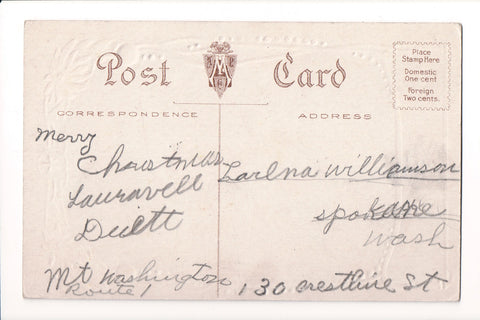 Post Card
Place
Stamp Here
Domestic
One cent
Foreign
Two cents.
CORRESPONDENCE
ADDRESS
Merry
Christmas
Lauravell
Duett
Mt Washington
Route 1
Larena Williamson
spokane
wash
130 crestline St